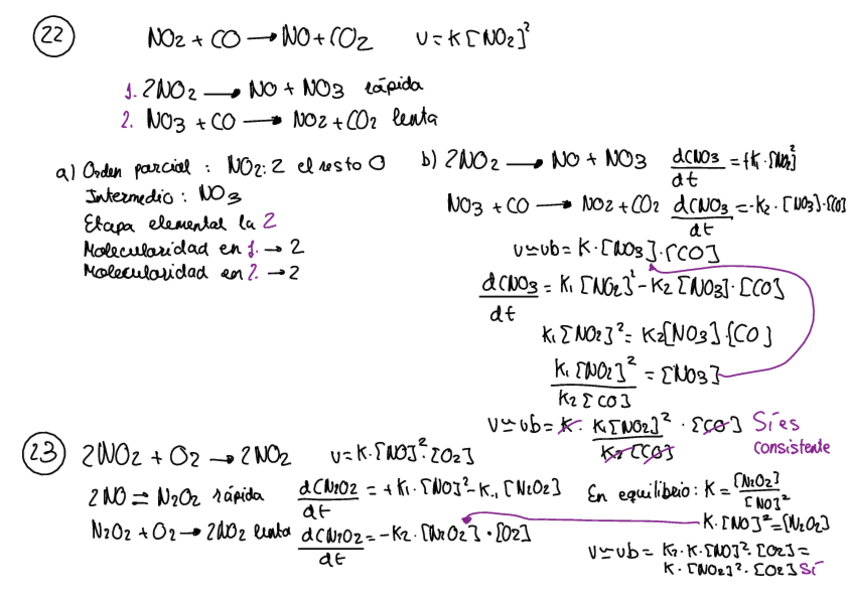 22 NO2 + CO → NO + CO2 v = K [NO2]²
1. 2NO2 → NO + NO3 rápida
2. NO3 + CO → NO2 + CO2 lenta
a) Orden parcial : NO2: 2 el resto 0
Intermedio : NO3
Etapa elemental la 2
Molecularidad en 1. → 2
Molecularidad en 2. → 2
b) 2NO2 → NO + NO3 d[NO3/dt = +K · [NO2]²
NO3 + CO → NO2 + CO2 d[NO3/dt = -K2 · [NO3] · [CO]
v ≃ vb = K · [NO3] · [CO]
d[NO3/dt = K1 [NO2]² - K2 [NO3] · [CO]
K1 [NO2]² = K2 [NO3] · [CO]
K1 [NO2]² / K2 [CO] = [NO3]
v ≃ vb = K · K1 [NO2]² / K2 [CO] · [CO] Sí es
consistente
23 2NO2 + O2 → 2NO2 v = K · [NO]² · [O2]
2NO ⇌ N2O2 rápida d[N2O2/dt = +K1 · [NO]² - K-1 [N2O2]
N2O2 + O2 → 2NO2 lenta d[N2O2/dt = -K2 · [N2O2] · [O2]
En equilibrio : K = [N2O2] / [NO]²
K · [NO]² = [N2O2]
v ≃ vb = K2 · K · [NO]² · [O2] =
K · [NO2]² · [O2] Sí